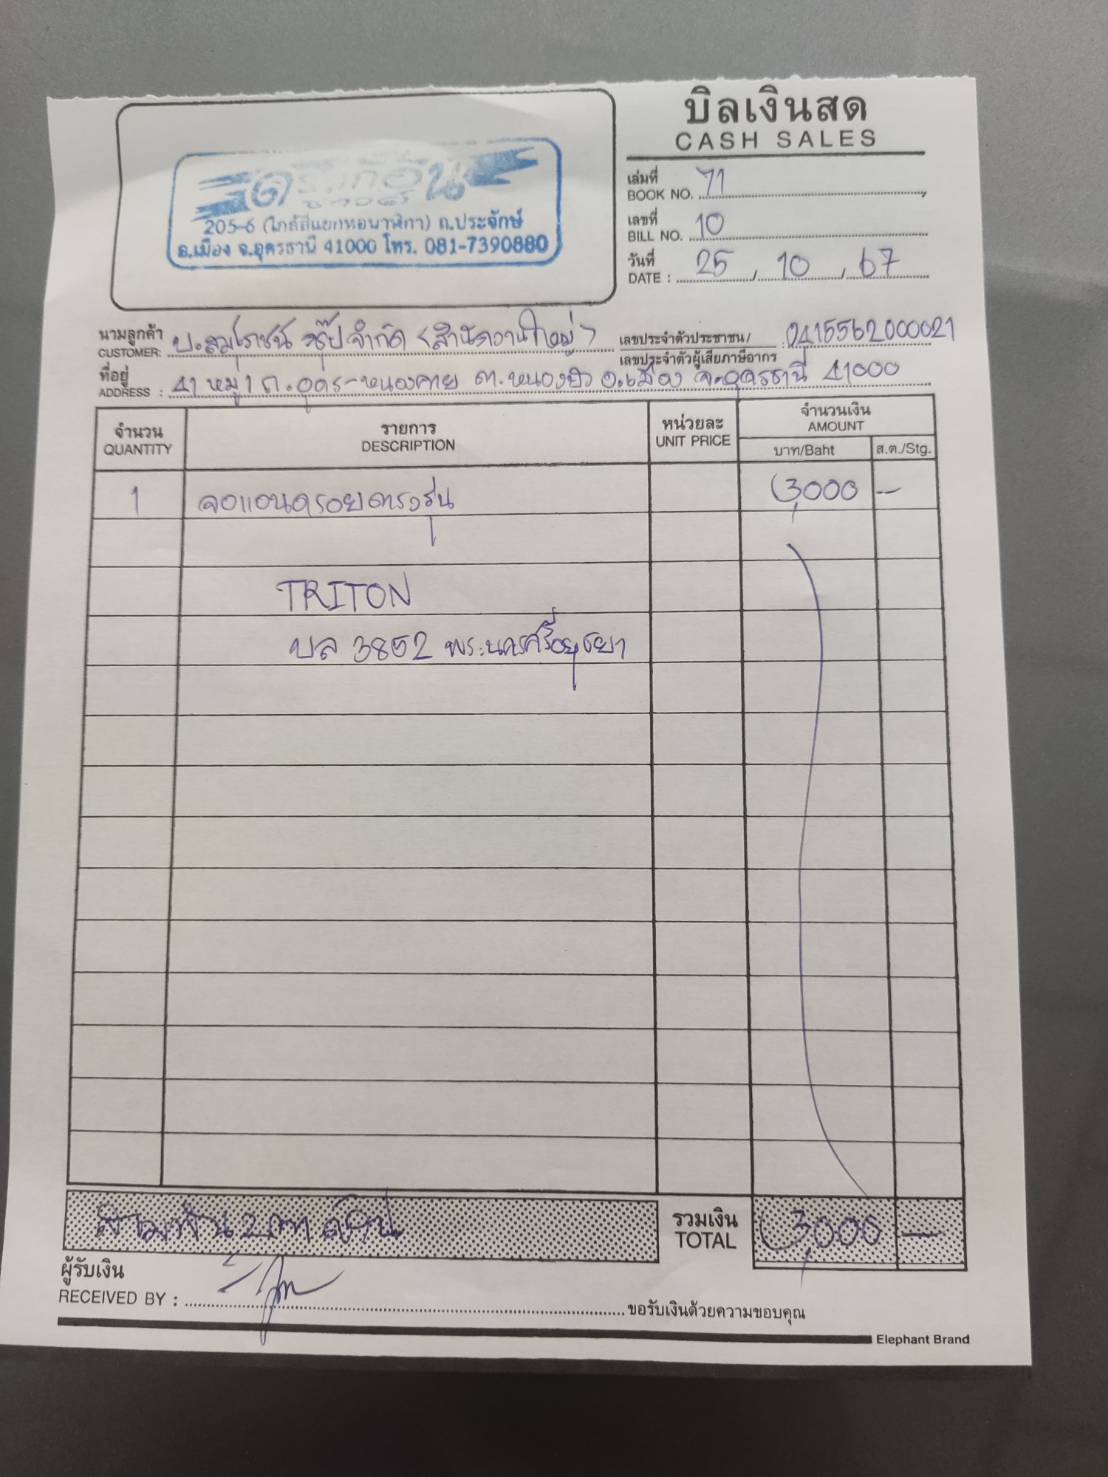 บิลเงินสด
CASH SALES
205-6 (ใกล้สี่แยกหอนาฬิกา) ถ.ประจักษ์
อ.เมือง จ.อุดรธานี 41000 โทร. 081-7390880
เล่มที่
BOOK NO. 71
เลขที่
BILL NO. 10
วันที่
DATE : 25 , 10 , 67
นามลูกค้า
CUSTOMER: บ.สมโภชน์ จำกัด (สำนักงานใหญ่)
เลขประจำตัวประชาชน/
เลขประจำตัวผู้เสียภาษีอากร 0415562000021
ที่อยู่
ADDRESS : 41 หมู่ 1 ถ.อุดร-หนองคาย ต.หนองบัว อ.เมือง จ.อุดรธานี 41000
จำนวน รายการ หน่วยละ จำนวนเงิน
QUANTITY DESCRIPTION UNIT PRICE AMOUNT
บาท/Baht ส.ต./Stg.
1 จอแอนดรอยตรงรุ่น 3,000 —
TRITON
บล 3852 พระนครศรีอยุธยา
สามพันบาทถ้วน
รวมเงิน
TOTAL 3,000 —
ผู้รับเงิน
RECEIVED BY : ขอรับเงินด้วยความขอบคุณ
Elephant Brand